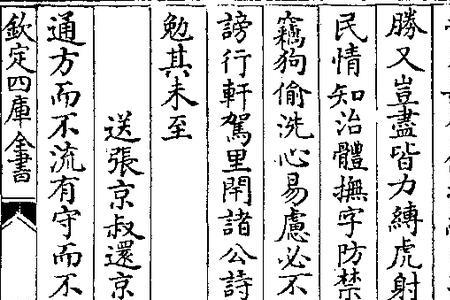 勝又豈盡皆力縛虎射
民情知治體撫字防禁
竊狗偷洗心易慮必不
謗行軒駕里閈諸公詩
勉其未至
送張京叔還京
通方而不流有守而不
欽定四庫全書